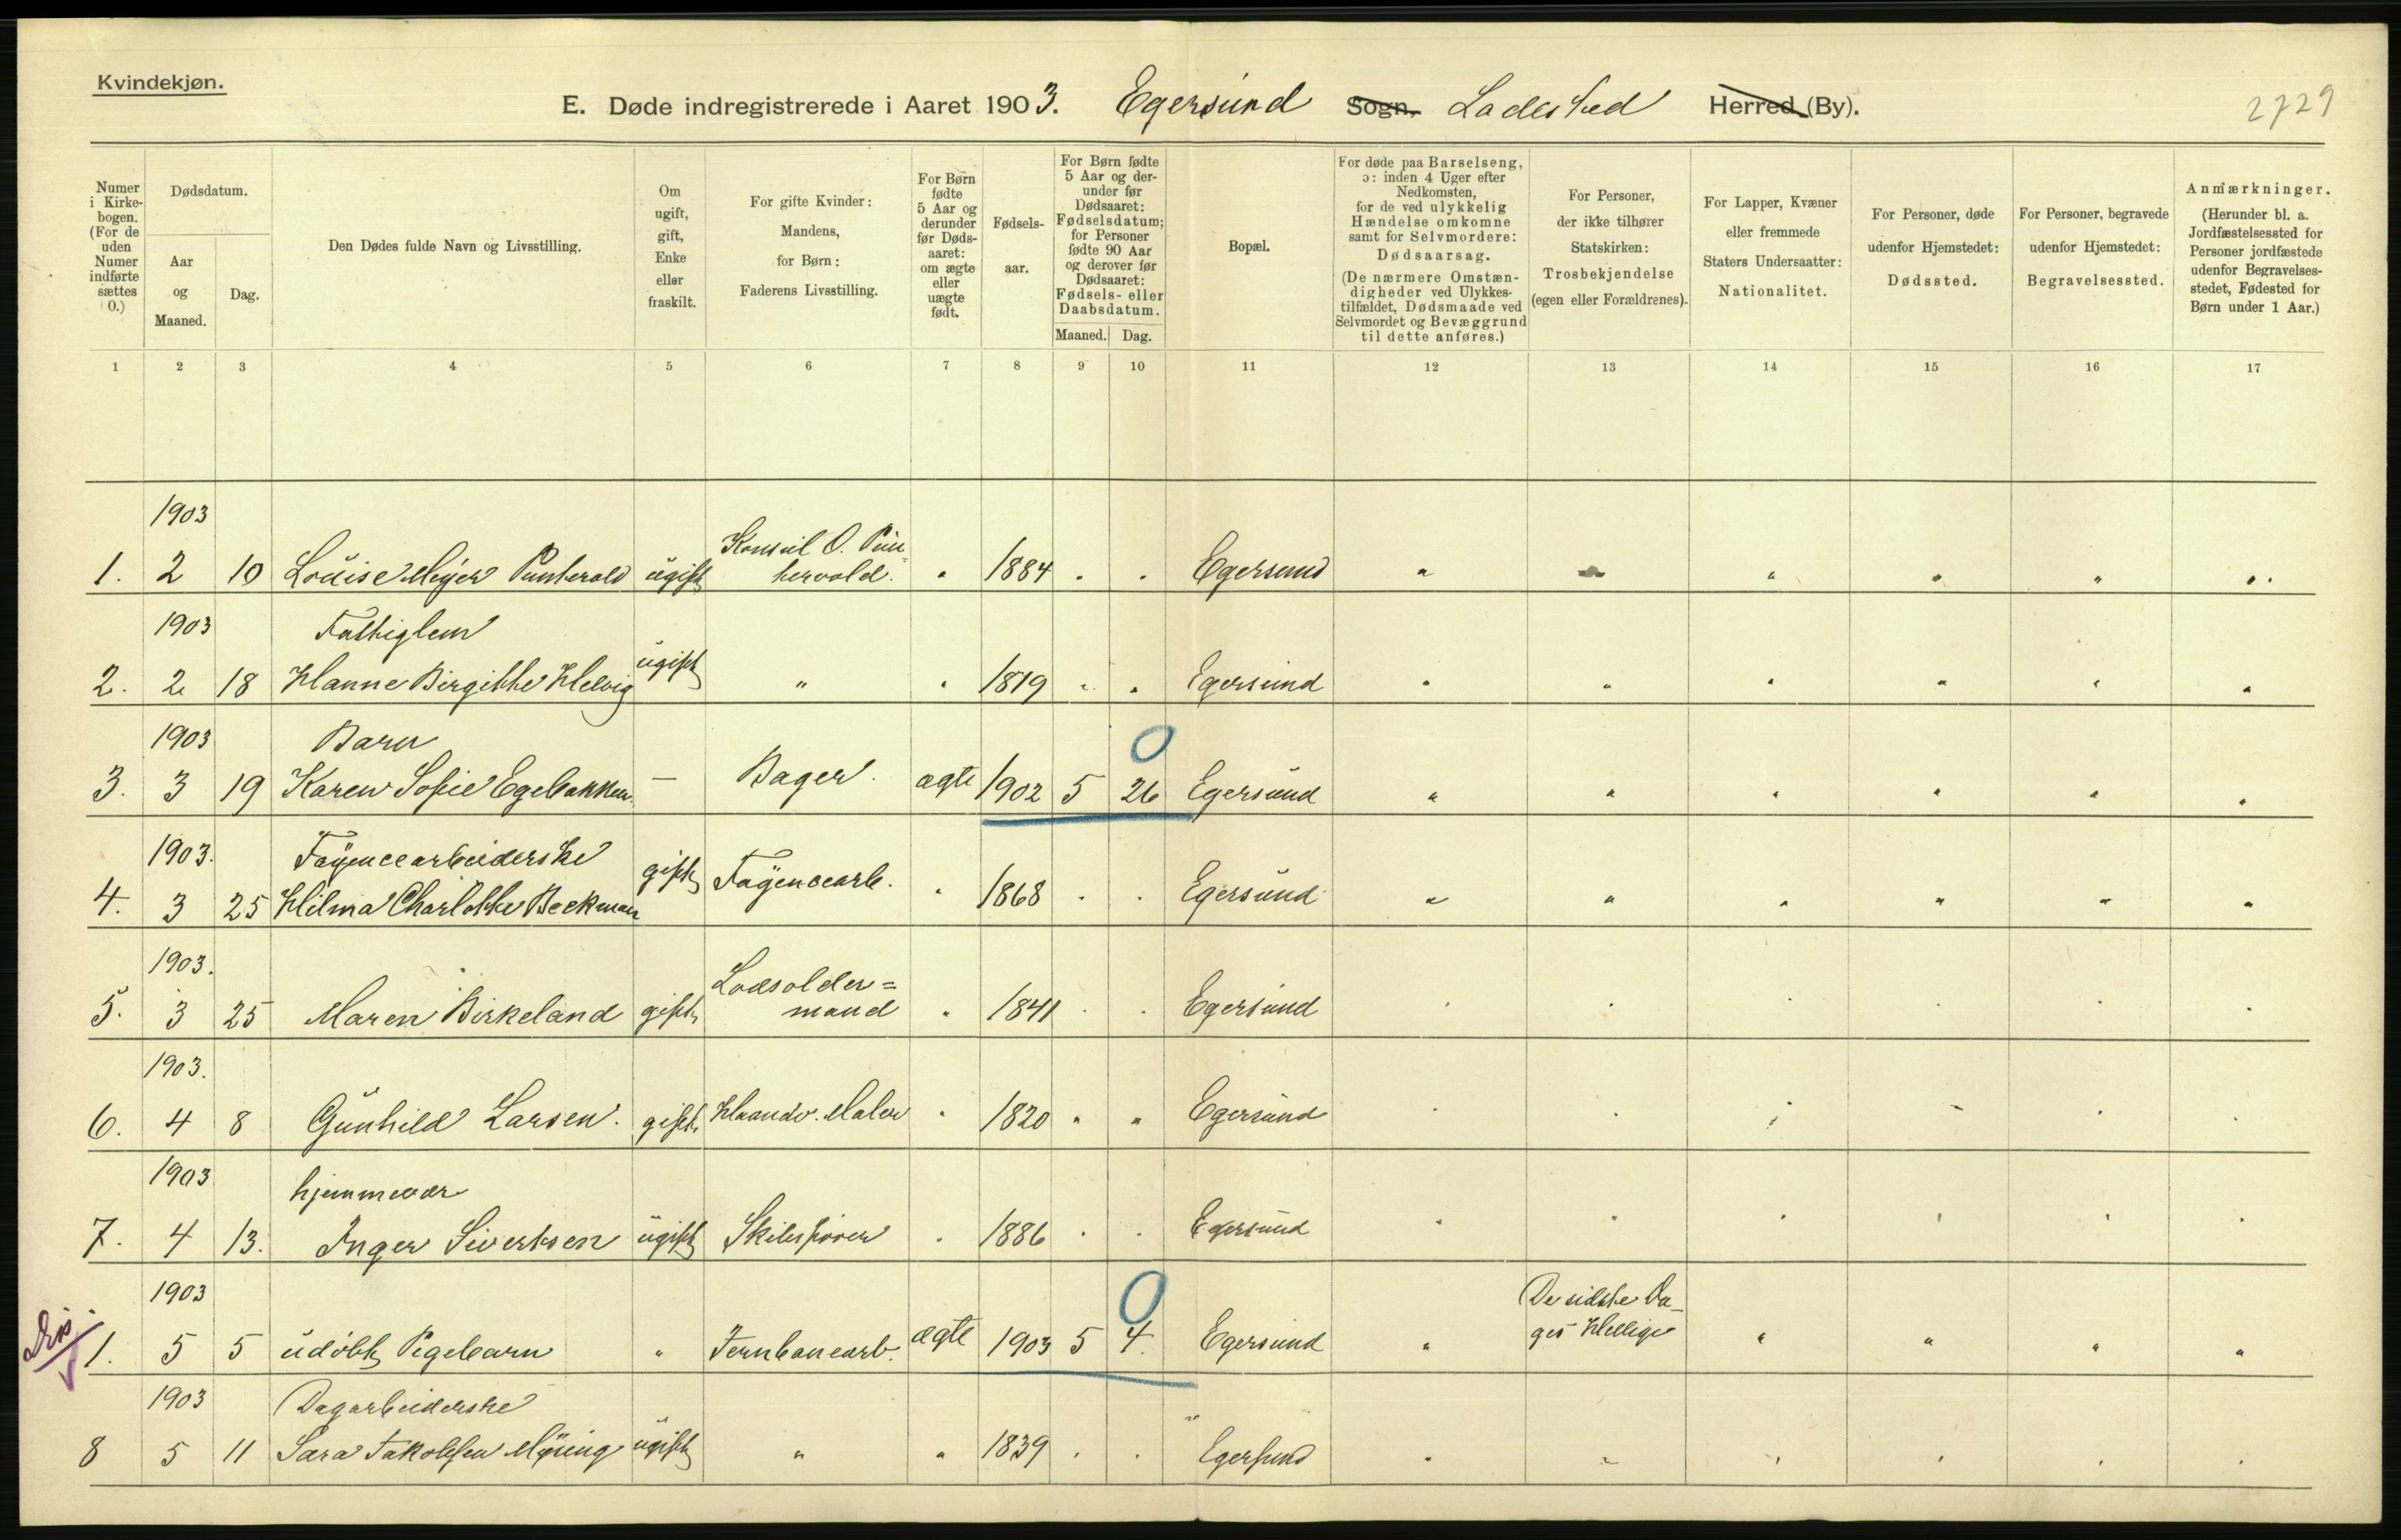 Kvindekjøn.
E. Døde indregistrerede i Aaret 1903. Egersund Sogn. Ladested Herred (By).
2729
Numer i Kirke-bogen. (For de uden Numer indførte sættes 0.)
Dødsdatum.
Aar og Maaned.
Dag.
Den Dødes fulde Navn og Livsstilling.
Om ugift, gift, Enke eller fraskilt.
For gifte Kvinder: Mandens, for Børn: Faderens Livsstilling.
For Børn fødte 5 Aar og derunder før Døds-aaret: om ægte eller uægte født.
Fødsels-aar.
For Børn fødte 5 Aar og der-under før Dødsaaret: Fødselsdatum; for Personer fødte 90 Aar og derover før Dødsaaret: Fødsels- eller Daabsdatum.
Maaned. Dag.
Bopæl.
For døde paa Barselseng, ɔ: inden 4 Uger efter Nedkomsten, for de ved ulykkelig Hændelse omkomne samt for Selvmordere: Dødsaarsag. (De nærmere Omstæn-digheder ved Ulykkes-tilfældet, Dødsmaade ved Selvmordet og Bevæggrund til dette anføres.)
For Personer, der ikke tilhører Statskirken: Trosbekjendelse (egen eller Forældrenes).
For Lapper, Kvæner eller fremmede Staters Undersaatter: Nationalitet.
For Personer, døde udenfor Hjemstedet: Dødssted.
For Personer, begravede udenfor Hjemstedet: Begravelsessted.
Anmærkninger. (Herunder bl. a. Jordfæstelsessted for Personer jordfæstede udenfor Begravelses-stedet, Fødested for Børn under 1 Aar.)
1 2 3 4 5 6 7 8 9 10 11 12 13 14 15 16 17
1903 Konsul O. Pun=
1. 2 10 Louise Meyer Puntervold ugift tervold. " 1884 " " Egersund " " " " " "
1903 Fattiglem
2. 2 18 Hanne Birgitte Helvig ugift " " 1819 " " Egersund " " " " " "
1903 Barn 0
3. 3 19 Karen Sofie Egebakken. — Bager. ægte 1902 5 26 Egersund " " " " " "
1903. Fayencearbeiderske
4. 3 25 Hilma Charlotte Beckman gift Fayencearb. " 1868 " " Egersund " " " " " "
1903. Lodsolder=
5. 3 25 Maren Birkeland gift mand " 1841 " " Egersund " " " " " "
1903.
6. 4 8 Gunhild Larsen. gift Haandv. Maler " 1820 " " Egersund " " " " " "
1903 hjemmevær
7. 4 13. Inger Sivertsen ugift Skibsfører " 1886 " " Egersund " " " " " "
1903 0 De sidste Da-
Dis 1. 5 5 udøbt Pigebarn " Jernbanearb. ægte 1903 5 4. Egersund " ges Hellige " " " "
1903 Dagarbeiderske
8 5 11 Sara Jakobsen ugift " " 1839 " " Egersund " " " " " "